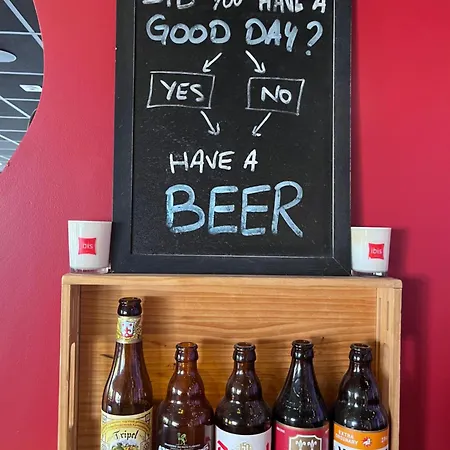 DID YOU HAVE A
GOOD DAY?
YES
NO
HAVE A
BEER
ibis
ibis
Tripel
EXTRA